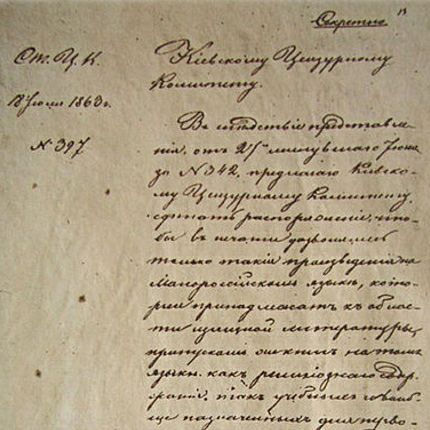 Секретно
Ст. Ц. К.
18 Іюля 1863 г.
N 397
Кіевскому Цензурному
Комитету.
Въ слѣдствіе представле-
нія, отъ 27 минувшаго Іюня
за N 342, предлагаю Кіевско-
му Цензурному Комитету,
сдѣлать распоряженіе, что-
бы въ печати дозволялись
только такія произведенія на
Малороссійскомъ языкѣ, кото-
рыя принадлежатъ къ облас-
ти изящной литературы;
пропускомъ книгъ на томъ
языкѣ какъ религіознаго содер-
жанія, такъ учебныхъ и вооб-
ще назначенныхъ для перво-